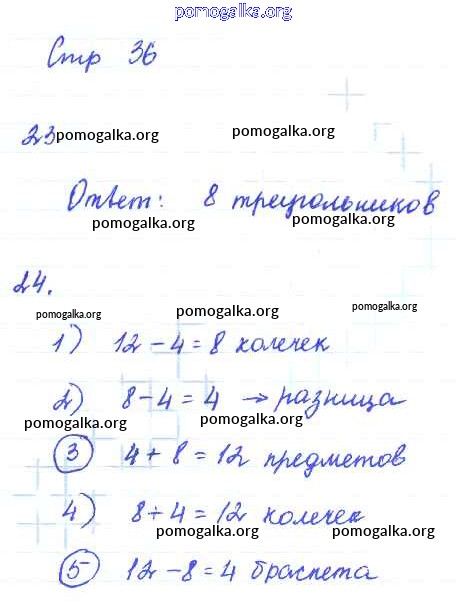 pomogalka.org
Стр 36
23 pomogalka.org
pomogalka.org
Ответ: 8 треугольников
pomogalka.org pomogalka.org
24.
pomogalka.org pomogalka.org pomogalka.org
1) 12 - 4 = 8 колечек
2) 8 - 4 = 4 → разница
pomogalka.org pomogalka.org
3 4 + 8 = 12 предметов
4) 8 + 4 = 12 колечек
pomogalka.org pomogalka.org pomogalka.org
5 12 - 8 = 4 браслета